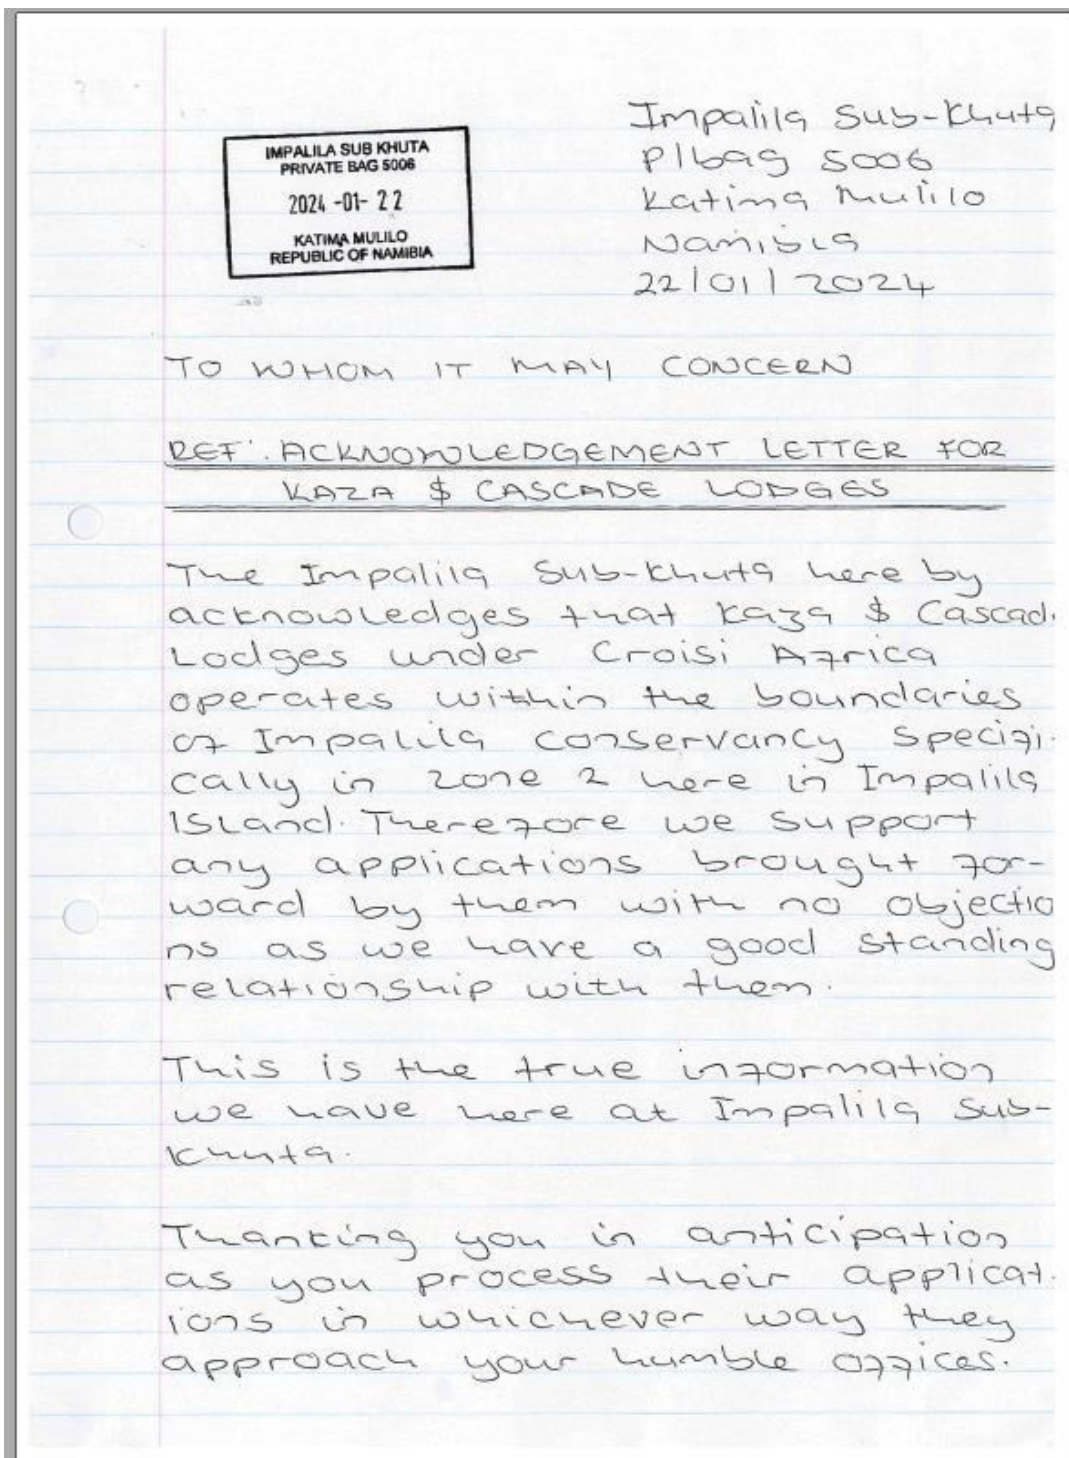 IMPALILA SUB KHUTA
PRIVATE BAG 5006
2024 -01- 22
KATIMA MULILO
REPUBLIC OF NAMIBIA
Impalila Sub-Khuta
P/bag 5006
Katima Mulilo
Namibia
22/01/2024
TO WHOM IT MAY CONCERN
REF: ACKNOWLEDGEMENT LETTER FOR
KAZA $ CASCADE LODGES
The Impalila Sub-Khuta here by
acknowledges that Kaza $ Cascad
Lodges under Croisi Africa
operates within the boundaries
of Impalila conservancy specifi-
cally in zone 2 here in Impalila
Island. Therefore we support
any applications brought for-
ward by them with no objectio
ns as we have a good standing
relationship with them.
This is the true information
we have here at Impalila Sub-
Khuta.
Thanking you in anticipation
as you process their applicat-
ions in whichever way they
approach your humble offices.